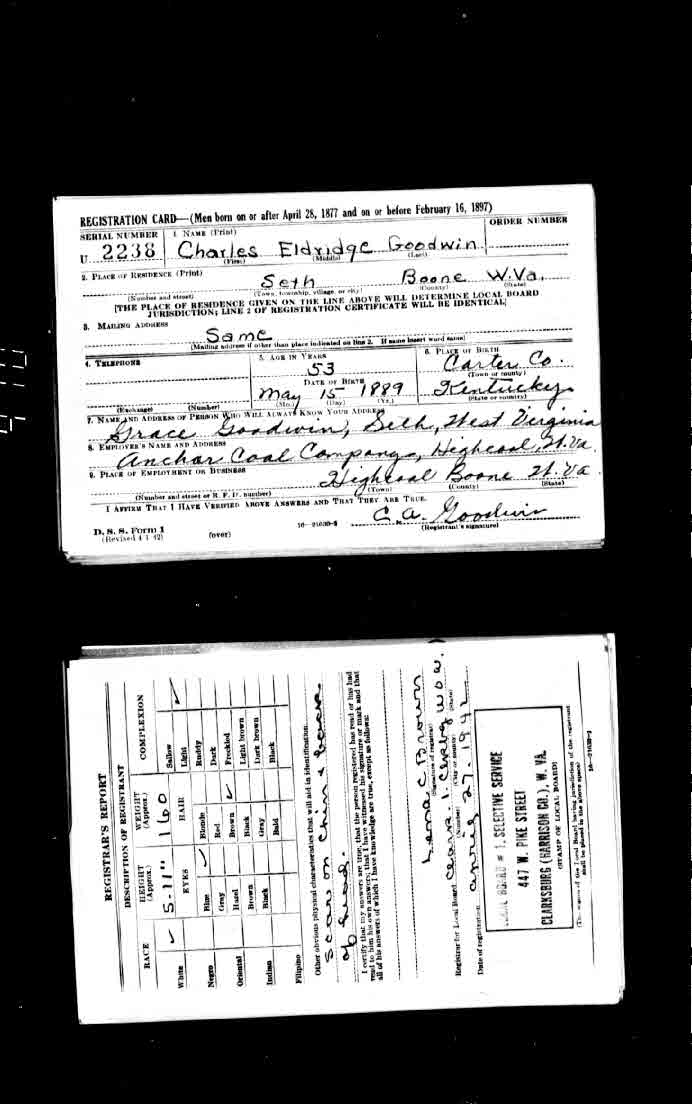 REGISTRATION CARD—(Men born on or after April 28, 1877 and on or before February 16, 1897)
SERIAL NUMBER
1. NAME (Print)
ORDER NUMBER
U 2238
Charles Eldridge Goodwin
(First) (Middle) (Last)
2. PLACE OF RESIDENCE (Print)
Seth Boone W.Va.
(Number and street) (Town, township, village, or city) (County) (State)
[THE PLACE OF RESIDENCE GIVEN ON THE LINE ABOVE WILL DETERMINE LOCAL BOARD
JURISDICTION; LINE 2 OF REGISTRATION CERTIFICATE WILL BE IDENTICAL]
3. MAILING ADDRESS
Same
(Mailing address if other than place indicated on line 2. If same insert word same)
4. TELEPHONE
5. AGE IN YEARS
6. PLACE OF BIRTH
53
Carter Co.
(Town or county)
DATE OF BIRTH
May 15 1889
Kentucky
(Exchange) (Number) (Mo.) (Day) (Yr.) (State or country)
7. NAME AND ADDRESS OF PERSON WHO WILL ALWAYS KNOW YOUR ADDRESS
Grace Goodwin, Seth, West Virginia
8. EMPLOYER'S NAME AND ADDRESS
Anchor Coal Company, Highcoal, W.Va.
9. PLACE OF EMPLOYMENT OR BUSINESS
Highcoal Boone W.Va.
(Number and street or R. F. D. number) (Town) (County) (State)
I AFFIRM THAT I HAVE VERIFIED ABOVE ANSWERS AND THAT THEY ARE TRUE.
D. S. S. Form 1
(Revised 4-1-42)
(over)
16—21630-2
C. A. Goodwin
(Registrant's signature)
REGISTRAR'S REPORT
DESCRIPTION OF REGISTRANT
RACE
HEIGHT
(Approx.)
WEIGHT
(Approx.)
COMPLEXION
5-11" 160
EYES
HAIR
White ✓
Negro
Oriental
Indian
Filipino
Blue ✓
Gray
Hazel
Brown
Black
Blonde
Red
Brown ✓
Black
Gray
Bald
Sallow
Light ✓
Ruddy
Dark
Freckled
Light brown
Dark brown
Black
Other obvious physical characteristics that will aid in identification
Scar on chin & back
of head.
I certify that my answers are true; that the person registered has read or has had
read to him his own answers; that I have witnessed his signature or mark and that
all of his answers of which I have knowledge are true, except as follows:
C Brown
(Signature of registrar)
Registrar for Local Board
(Number) (City or county) (State)
Date of registration April 27-1942
LOCAL BOARD # 1, SELECTIVE SERVICE
447 W. PIKE STREET
CLARKSBURG (HARRISON CO.), W. VA.
(STAMP OF LOCAL BOARD)
(The stamp of the Local Board having jurisdiction of the registrant
shall be placed in the above space)
16—21630-2